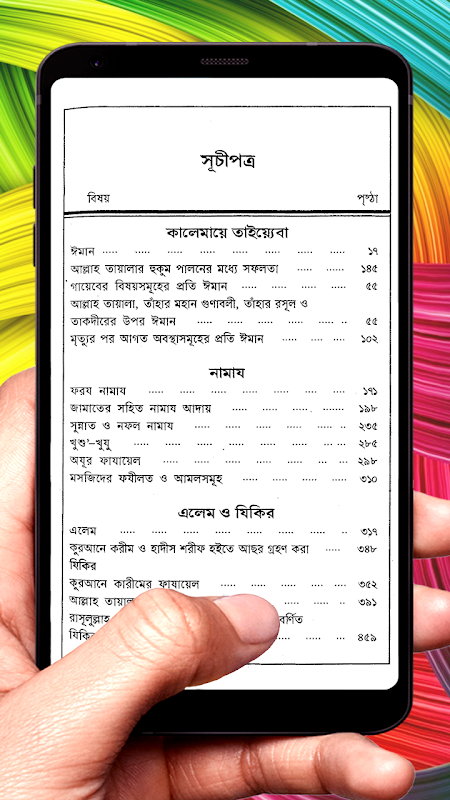 সূচীপত্র
বিষয় পৃষ্ঠা
কালেমায়ে তাইয়্যেবা
ঈমান ১৭
আল্লাহ তায়ালার হুকুম পালনের মধ্যে সফলতা ১৪৫
গায়েবের বিষয়সমূহের প্রতি ঈমান ৫৫
আল্লাহ তায়ালা, তাঁহার মহান গুণাবলী, তাঁহার রসূল ও
তাকদীরের উপর ঈমান ৫৫
মৃত্যুর পর আগত অবস্থাসমূহের প্রতি ঈমান ১০২
নামায
ফরয নামায ১৭১
জামাতের সহিত নামায আদায় ১৯৮
সুন্নাত ও নফল নামায ২৩৫
খুশু'-খুযু ২৮৫
অযূর ফাযায়েল ২৯৮
মসজিদের ফযীলত ও আমলসমূহ ৩১০
এলেম ও যিকির
এলেম ৩১৭
কুরআনে করীম ও হাদীস শরীফ হইতে আছর গ্রহণ করা ৩৪৮
যিকির
কুরআনে কারীমের ফাযায়েল ৩৫২
আল্লাহ তায়াল ৩৯১
রাসূলুল্লাহ বর্ণিত
যিকি ৪৫৯